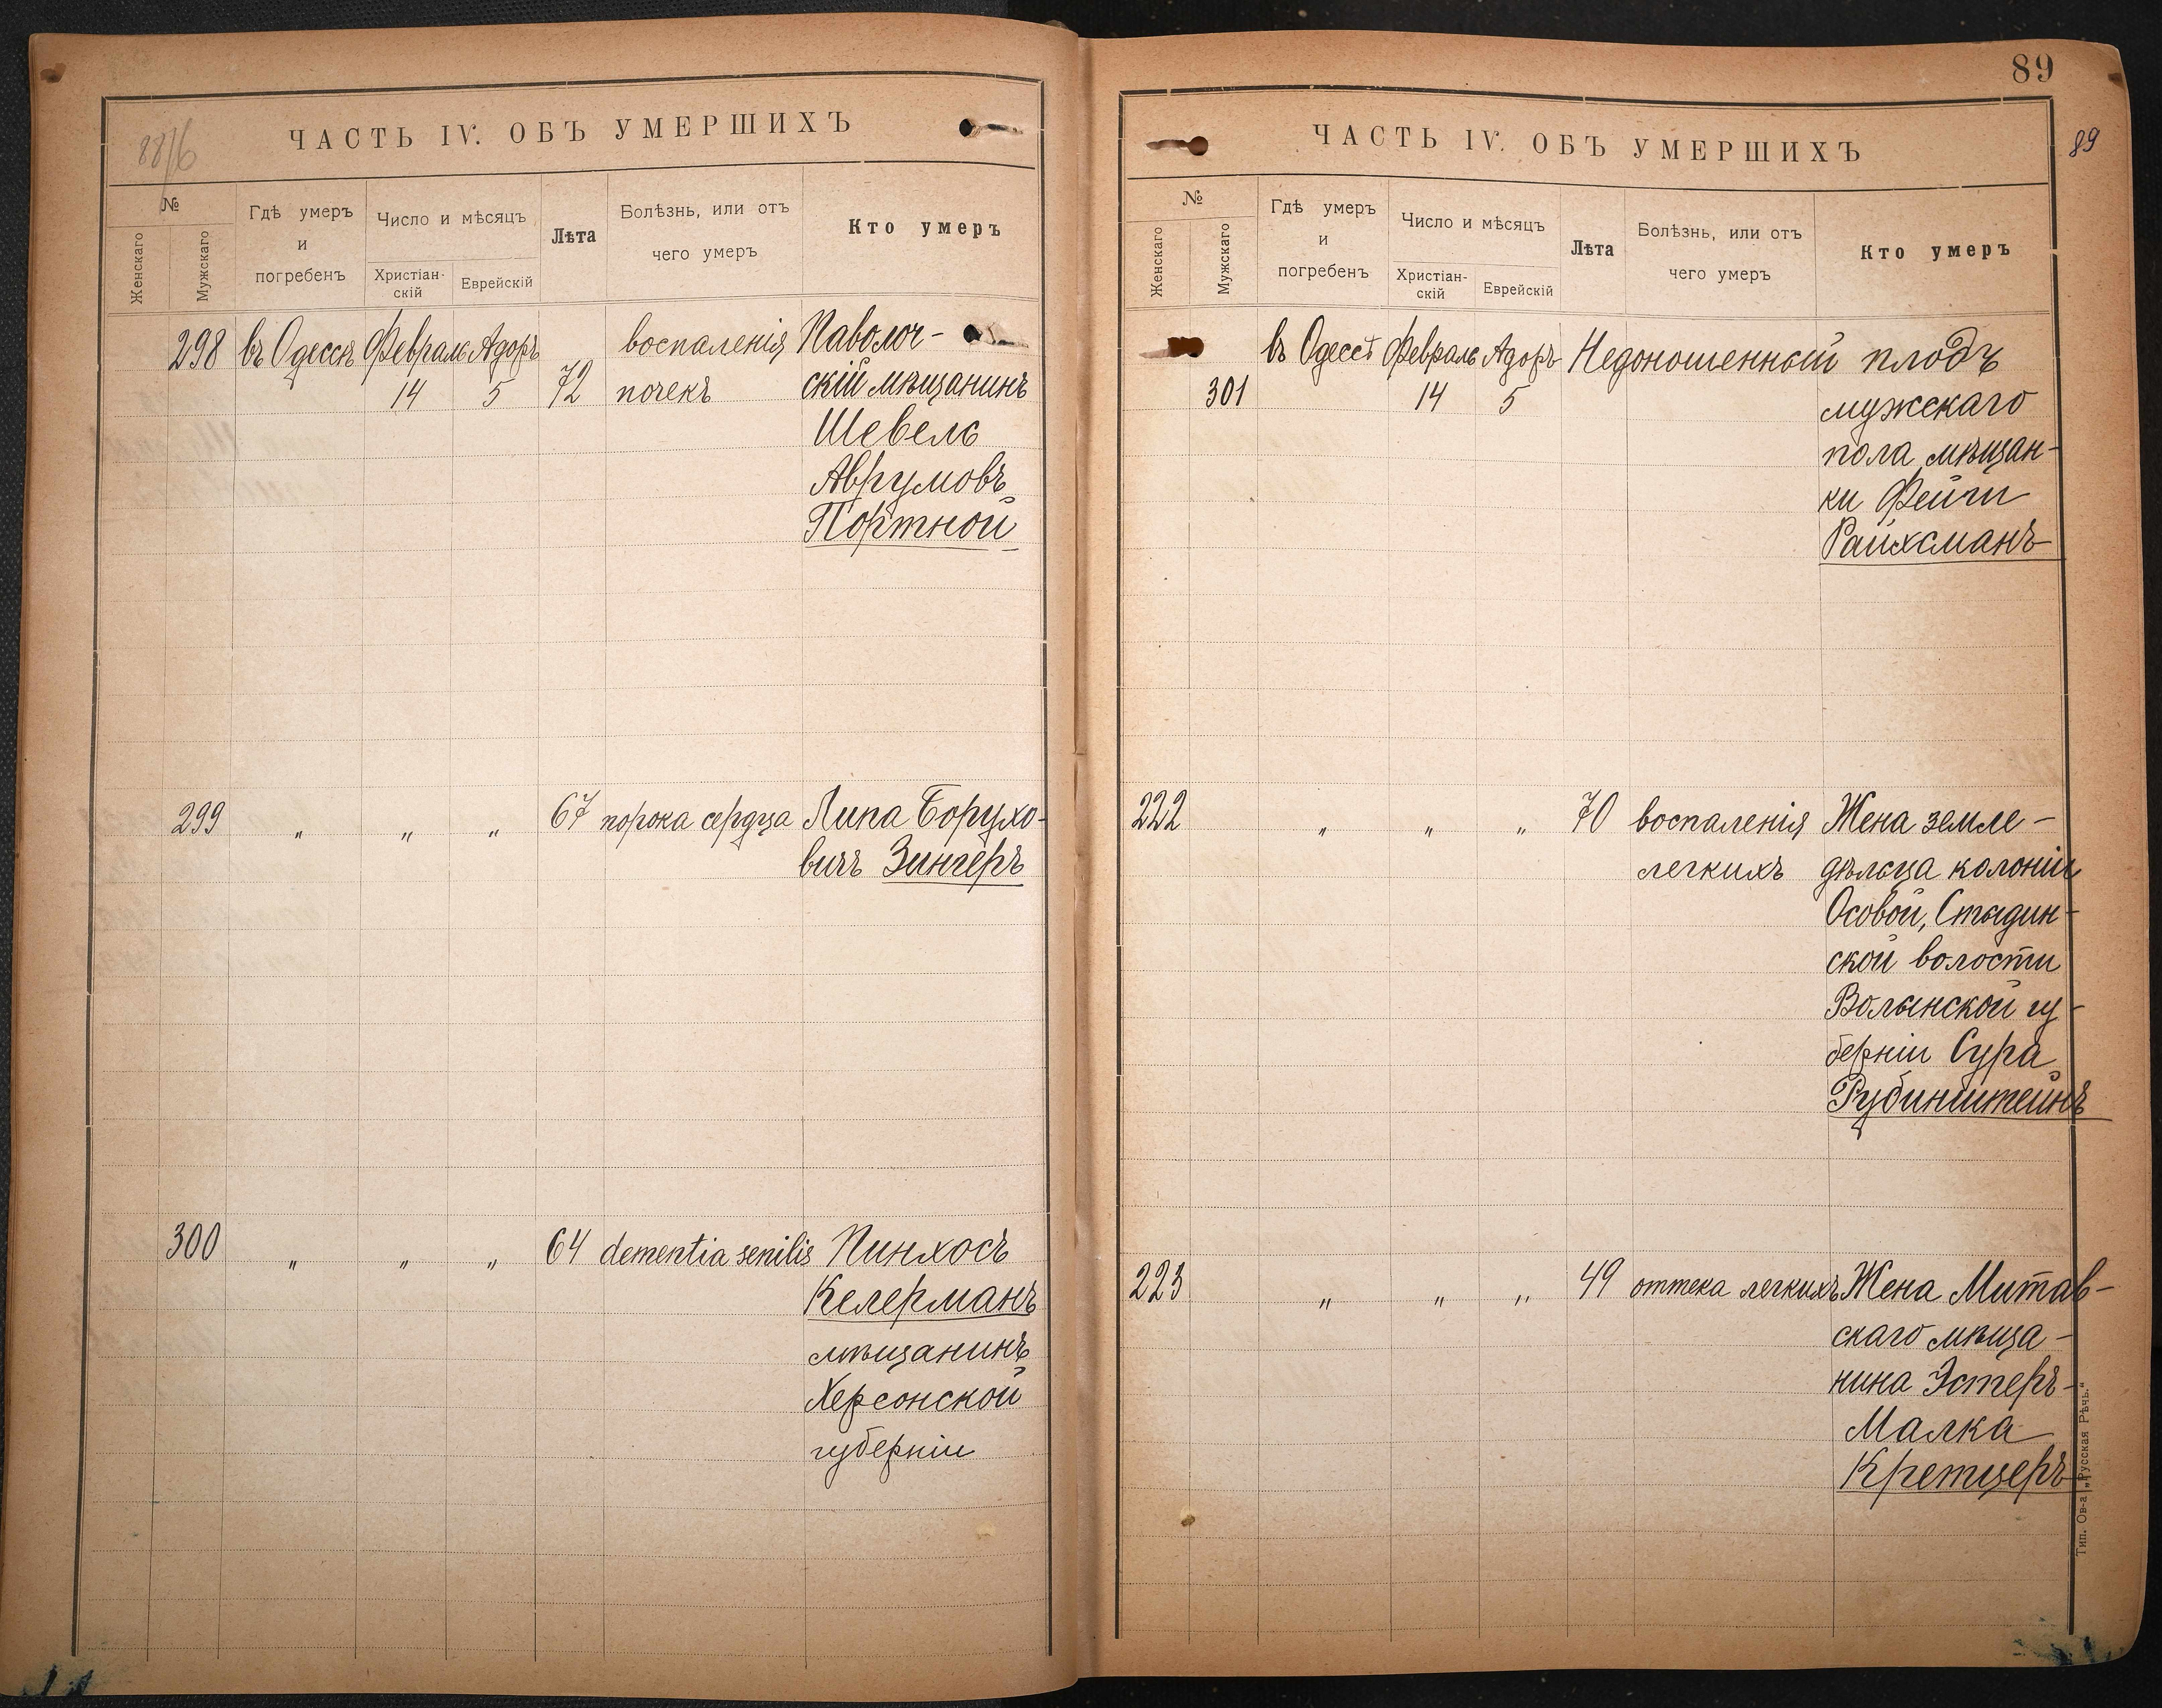 88/б
ЧАСТЬ IV. ОБЪ УМЕРШИХЪ
№
Женскаго
Мужскаго
Гдѣ умеръ
и
погребенъ
Число и мѣсяцъ
Христіан-
скій
Еврейскій
Лѣта
Болѣзнь, или отъ
чего умеръ
Кто умеръ
298 въ Одессѣ Февраль Адоръ воспаленія Паволоч-
14 5 72 почекъ скій мѣщанинъ
Шевель
Аврумовъ
Портной
299 " " " 67 порока сердца Липа Борухо-
вичъ Зингеръ
300 " " " 64 dementia senilis Пинхосъ
Келерманъ
мѣщанинъ
Херсонской
губерніи
89
89
ЧАСТЬ IV. ОБЪ УМЕРШИХЪ
№
Женскаго
Мужскаго
Гдѣ умеръ
и
погребенъ
Число и мѣсяцъ
Христіан-
скій
Еврейскій
Лѣта
Болѣзнь, или отъ
чего умеръ
Кто умеръ
въ Одессѣ Февраль Адоръ Недоношенный плодъ
301 14 5 мужскаго
пола мѣщан-
ки Фейги
Райхсманъ
222 " " " 70 воспаленія Жена земле-
легкихъ дѣльца колоніи
Осовой, Стыдин-
ской волости
Волынской гу-
берніи Сура
Рубинштейнъ
223 " " " 49 оттека легкихъ Жена Митав-
скаго мѣща-
нина Эстеръ-
Малка
Кретцеръ
Тип. Ов-а „Русская Рѣчь."